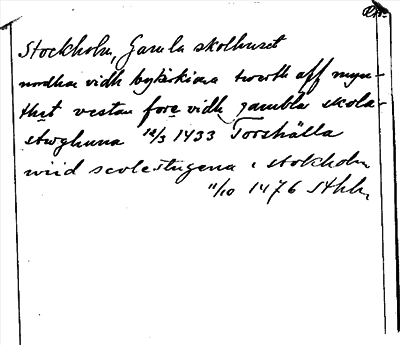 Stockholm, Gamla skolhuset
nordhan vidh bykirkiona twerth aff myn-
thet vestan fore vidh gambla skola-
stwghunna 12/3 1433 Torshälla
wiid scolestugena i stokholm
11/10 1476 Sthlm